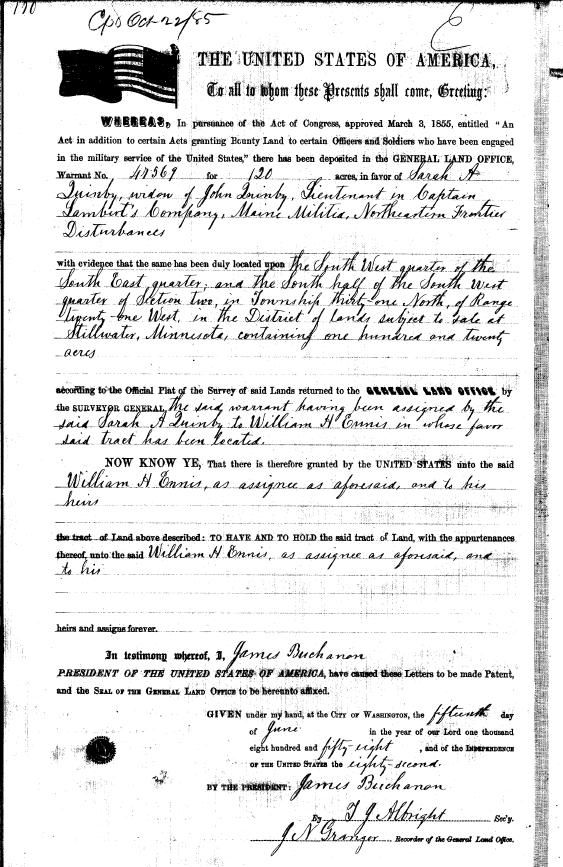 190
Cps Oct 22/85
THE UNITED STATES OF AMERICA,
To all to whom these Presents shall come, Greeting:
WHEREAS, In pursuance of the Act of Congress, approved March 3, 1855, entitled "An
Act in addition to certain Acts granting Bounty Land to certain Officers and Soldiers who have been engaged
in the military service of the United States," there has been deposited in the GENERAL LAND OFFICE,
Warrant No. 47569 for 120 acres, in favor of Sarah A
Quinby, widow of John Quinby, Lieutenant in Captain
Lambert's Company, Maine Militia, Northeastern Frontier
Disturbances
with evidence that the same has been duly located upon the South West quarter of the
South East quarter, and the South half of the South West
quarter of Section two, in Township thirty-one North, of Range
twenty-one West, in the District of Lands subject to sale at
Stillwater, Minnesota, containing one hundred and twenty
acres
according to the Official Plat of the Survey of said Lands returned to the GENERAL LAND OFFICE by
the SURVEYOR GENERAL, the said warrant having been assigned by the
said Sarah A Quinby to William H Ennis in whose favor
said tract has been located.
NOW KNOW YE, That there is therefore granted by the UNITED STATES unto the said
William H Ennis, as assignee as aforesaid, and to his
heirs
the tract of Land above described: TO HAVE AND TO HOLD the said tract of Land, with the appurtenances
thereof, unto the said William H Ennis, as assignee as aforesaid, and
to his
heirs and assigns forever.
In testimony whereof, I, James Buchanan
PRESIDENT OF THE UNITED STATES OF AMERICA, have caused these Letters to be made Patent,
and the SEAL OF THE GENERAL LAND OFFICE to be hereunto affixed.
GIVEN under my hand, at the CITY OF WASHINGTON, the fifteenth day
of June in the year of our Lord one thousand
eight hundred and fifty-eight, and of the INDEPENDENCE
OF THE UNITED STATES the eighty-second.
BY THE PRESIDENT: James Buchanan
By T J Albright Sec'y.
J N Granger Recorder of the General Land Office.